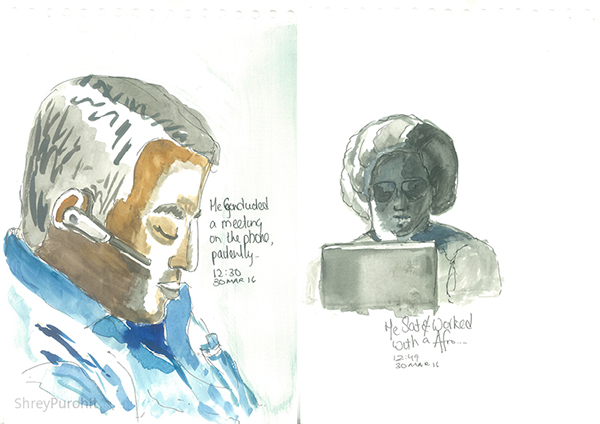 He Conducted
a meeting
on the phone,
patiently..
12:30
30 MAR 16
He Sat & Worked
with a Afro....
12:49
30 MAR 16
ShreyPurohit